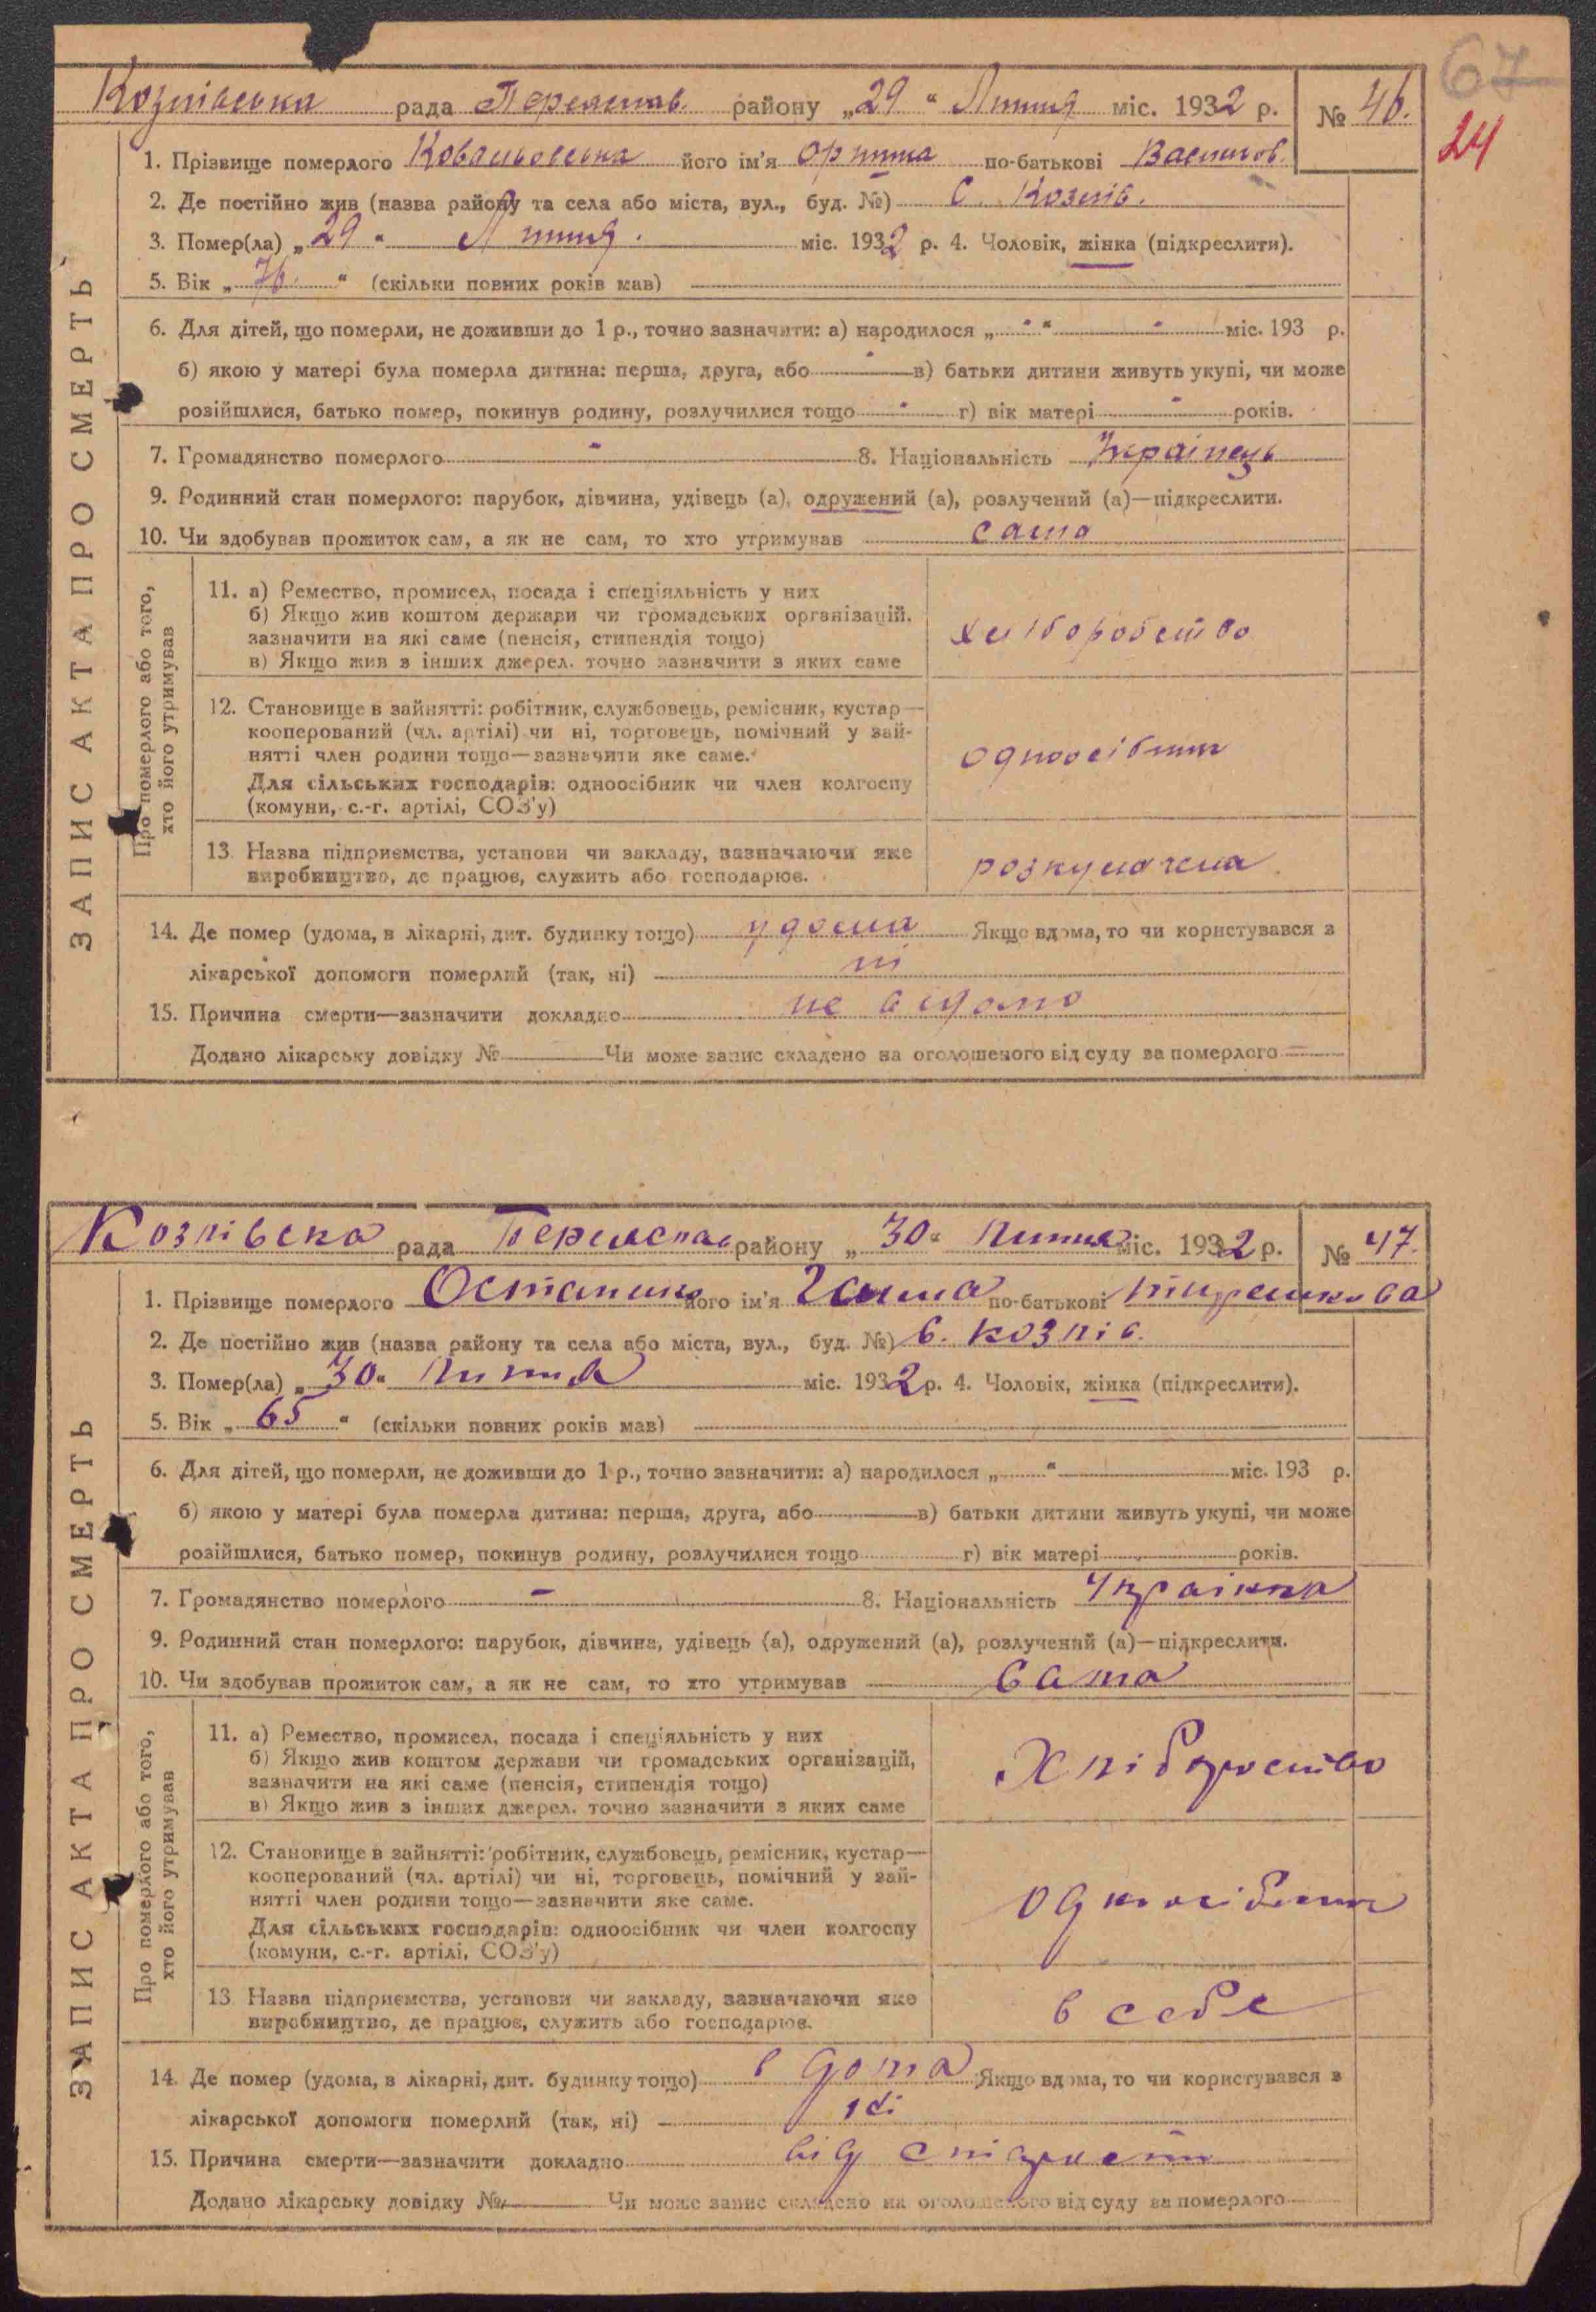 67
24
Козлівська рада Переяслав. району „29“ Липня міс. 1932 р. № 46.
ЗАПИС АКТА ПРО СМЕРТЬ
1. Прізвище померлого Ковальовська його ім'я Орише по-батькові Васильов.
2. Де постійно жив (назва району та села або міста, вул., буд. №) С. Козлів.
3. Помер(ла) „29“ Липня. міс. 1932 р. 4. Чоловік, жінка (підкреслити).
5. Вік „76.“ (скільки повних років мав)
6. Для дітей, що померли, не доживши до 1 р., точно зазначити: а) народилося „-“ - міс. 193 р.
б) якою у матері була померла дитина: перша, друга, або - в) батьки дитини живуть укупі, чи може
розійшлися, батько помер, покинув родину, розлучилися тощо - г) вік матері - років.
7. Громадянство померлого - 8. Національність Українець
9. Родинний стан померлого: парубок, дівчина, удівець (а), одружений (а), розлучений (а)—підкреслити.
10. Чи здобував прожиток сам, а як не сам, то хто утримував сама
Про померлого або того,
хто його утримував
11. а) Ремество, промисел, посада і спеціяльність у них
б) Якщо жив коштом держави чи громадських організацій,
зазначити на які саме (пенсія, стипендія тощо)
в) Якщо жив з інших джерел, точно зазначити з яких саме
хліборобство
12. Становище в зайнятті: робітник, службовець, ремісник, кустар—
кооперований (чл. артілі) чи ні, торговець, помічний у зай-
нятті член родини тощо—зазначити яке саме.
Для сільських господарів: одноосібник чи член колгоспу
(комуни, с.-г. артілі, СОЗ'у)
одноосібник
13. Назва підприємства, установи чи закладу, зазначаючи яке
виробництво, де працює, служить або господарює.
розкулачена
14. Де помер (удома, в лікарні, дит. будинку тощо) удома Якщо вдома, то чи користувався з
лікарської допомоги померлий (так, ні) ні
15. Причина смерти—зазначити докладно не відомо
Додано лікарську довідку № Чи може запис складено на оголошеного від суду за померлого
Козлівска рада Переяслав району „30“ Липня міс. 1932 р. № 47.
ЗАПИС АКТА ПРО СМЕРТЬ
1. Прізвище померлого його ім'я Ганна по-батькові
2. Де постійно жив (назва району та села або міста, вул., буд. №) с. козлів.
3. Помер(ла) „30“ Липня міс. 1932 р. 4. Чоловік, жінка (підкреслити).
5. Вік „65“ (скільки повних років мав)
6. Для дітей, що померли, не доживши до 1 р., точно зазначити: а) народилося „ “ міс. 193 р.
б) якою у матері була померла дитина: перша, друга, або в) батьки дитини живуть укупі, чи може
розійшлися, батько помер, покинув родину, розлучилися тощо г) вік матері років.
7. Громадянство померлого - 8. Національність Українка
9. Родинний стан померлого: парубок, дівчина, удівець (а), одружений (а), розлучений (а)—підкреслити.
10. Чи здобував прожиток сам, а як не сам, то хто утримував сама
Про померлого або того,
хто його утримував
11. а) Ремество, промисел, посада і спеціяльність у них
б) Якщо жив коштом держави чи громадських організацій,
зазначити на які саме (пенсія, стипендія тощо)
в) Якщо жив з інших джерел, точно зазначити з яких саме
Хлібороство
12. Становище в зайнятті: робітник, службовець, ремісник, кустар—
кооперований (чл. артілі) чи ні, торговець, помічний у зай-
нятті член родини тощо—зазначити яке саме.
Для сільських господарів: одноосібник чи член колгоспу
(комуни, с.-г. артілі, СОЗ'у)
одноосібник
13. Назва підприємства, установи чи закладу, зазначаючи яке
виробництво, де працює, служить або господарює.
в себе
14. Де помер (удома, в лікарні, дит. будинку тощо) в дома Якщо вдома, то чи користувався з
лікарської допомоги померлий (так, ні)
15. Причина смерти—зазначити докладно від старости
Додано лікарську довідку № Чи може запис складено на оголошеного від суду за померлого